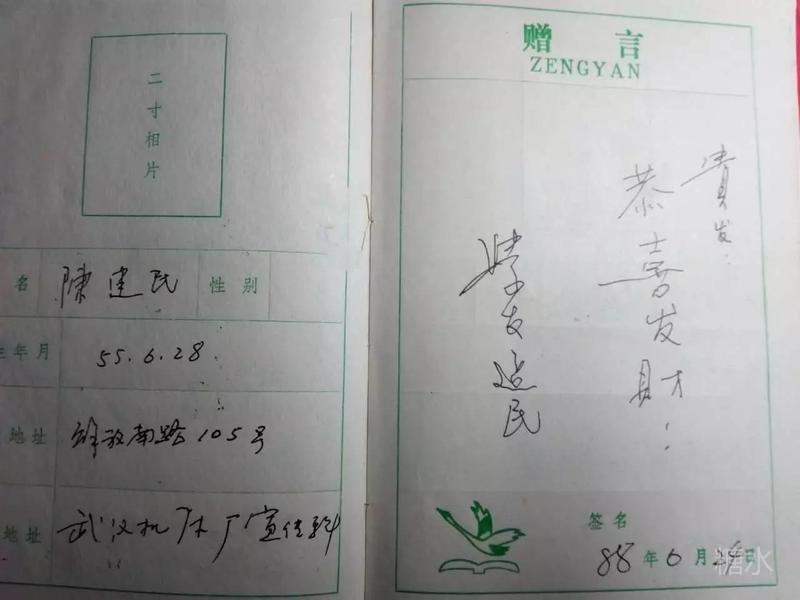 二寸相片
名 陳建民 性别
生年月 55.6.28
地址 解放南路105号
地址 武汉机床厂宣传科
赠言
ZENGYAN
貴发:
恭喜发财!
学友建民
签名
88年6月28日
糖水